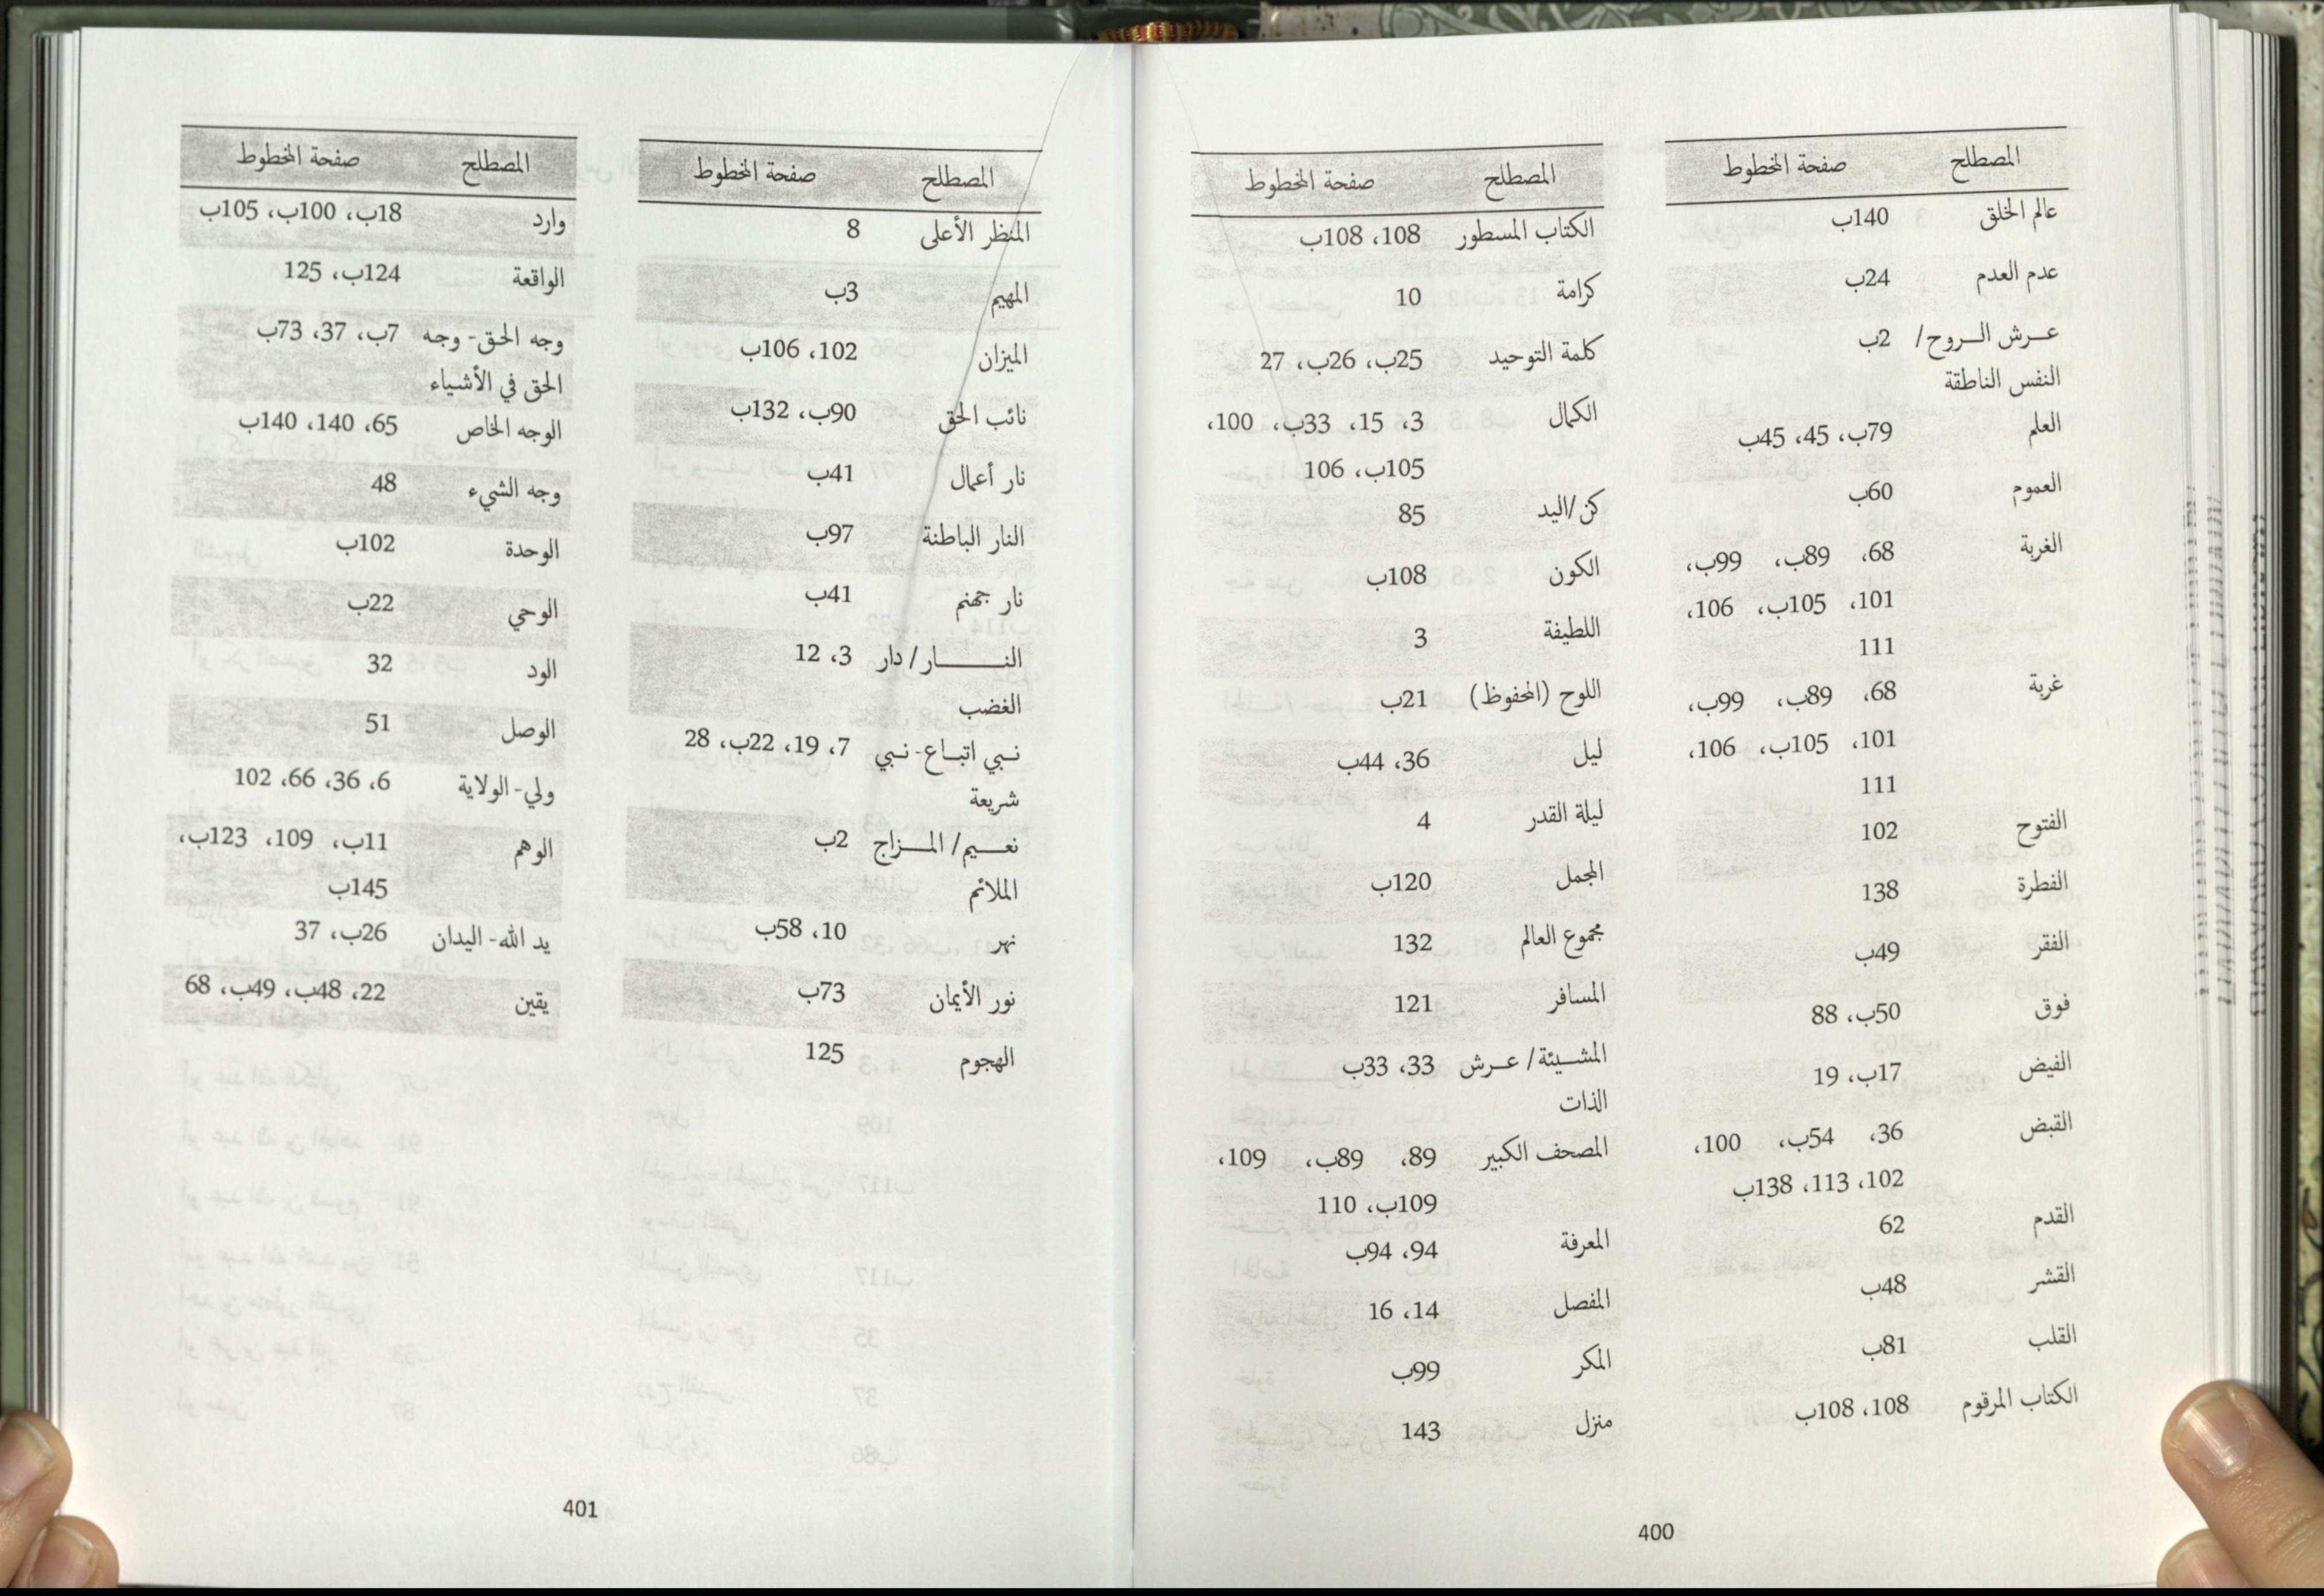 المصطلح صفحة المخطوط
عالم الخلق 140ب
عدم العدم 24ب
عـرش الـروح/ 2ب
النفس الناطقة
العلم 79ب، 45، 45ب
العموم 60ب
الغربة 68، 89ب، 99ب،
101، 105ب، 106،
111
غربة 68، 89ب، 99ب،
101، 105ب، 106،
111
الفتوح 102
الفطرة 138
الفقر 49ب
فوق 50ب، 88
الفيض 17ب، 19
القبض 36، 54ب، 100،
102، 113، 138ب
القدم 62
القشر 48ب
القلب 81ب
الكتاب المرقوم 108، 108ب
المصطلح صفحة المخطوط
الكتاب المسطور 108، 108ب
كرامة 10
كلمة التوحيد 25ب، 26ب، 27
الكمال 3، 15، 33ب، 100،
105ب، 106
كن/اليد 85
الكون 108ب
اللطيفة 3
اللوح (المحفوظ) 21ب
ليل 36، 44ب
ليلة القدر 4
المجمل 120ب
مجموع العالم 132
المسافر 121
المشـيئة/ عـرش 33، 33ب
الذات
المصحف الكبير 89، 89ب، 109،
109ب، 110
المعرفة 94، 94ب
المفصل 14، 16
المكر 99ب
منزل 143
400
المصطلح صفحة المخطوط
المنظر الأعلى 8
المهيم 3ب
الميزان 102، 106ب
نائب الحق 90ب، 132ب
نار أعمال 41ب
النار الباطنة 97ب
نار جهنم 41ب
النـــــــار/ دار 3، 12
الغضب
نـبي اتبـاع- نـبي 7، 19، 22ب، 28
شريعة
نعـــيم/ المـــزاج 2ب
الملائم
نهر 10، 58ب
نور الأيمان 73ب
الهجوم 125
المصطلح صفحة المخطوط
وارد 18ب، 100ب، 105ب
الواقعة 124ب، 125
وجه الحـق- وجـه 7ب، 37، 73ب
الحق في الأشياء
الوجه الخاص 65، 140، 140ب
وجه الشيء 48
الوحدة 102ب
الوحي 22ب
الود 32
الوصل 51
ولي- الولاية 6، 36، 66، 102
الوهم 11ب، 109، 123ب،
145ب
يد الله- اليدان 26ب، 37
يقين 22، 48ب، 49ب، 68
401